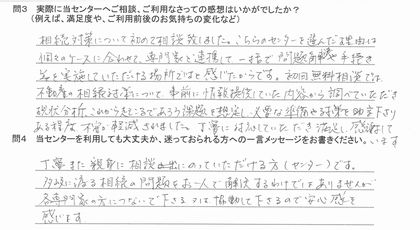 問3 実際に当センターへご相談、ご利用なさっての感想はいかがでしたか?
(例えば、満足度や、ご利用前後のお気持ちの変化など)
相続対策について初めて相談致しました。こちらのセンターを選んだ理由は
個々のケースに合わせて、専門家と連携して一括で問題解決や手続き
等を実施していただける場所であると感じたからです。初回無料相談では、
不動産の相続対策について、事前に情報提供していた内容から調べていただき
現状分析、これから起こるであろう課題を想定し、必要な準備や対策を助言下さり
ある程度 不安が軽減されました。丁寧に対応していただき満足し、感謝して
います
問4 当センターを利用しても大丈夫か、迷っておられる方への一言メッセージをお書きください。
丁寧また親身に相談にのっていただける方(センター)です。
多岐に渡る相続の問題をお一人で解決するわけではありませんが
各専門家の方につないで下さる又は協働して下さるので安心感を
感じます